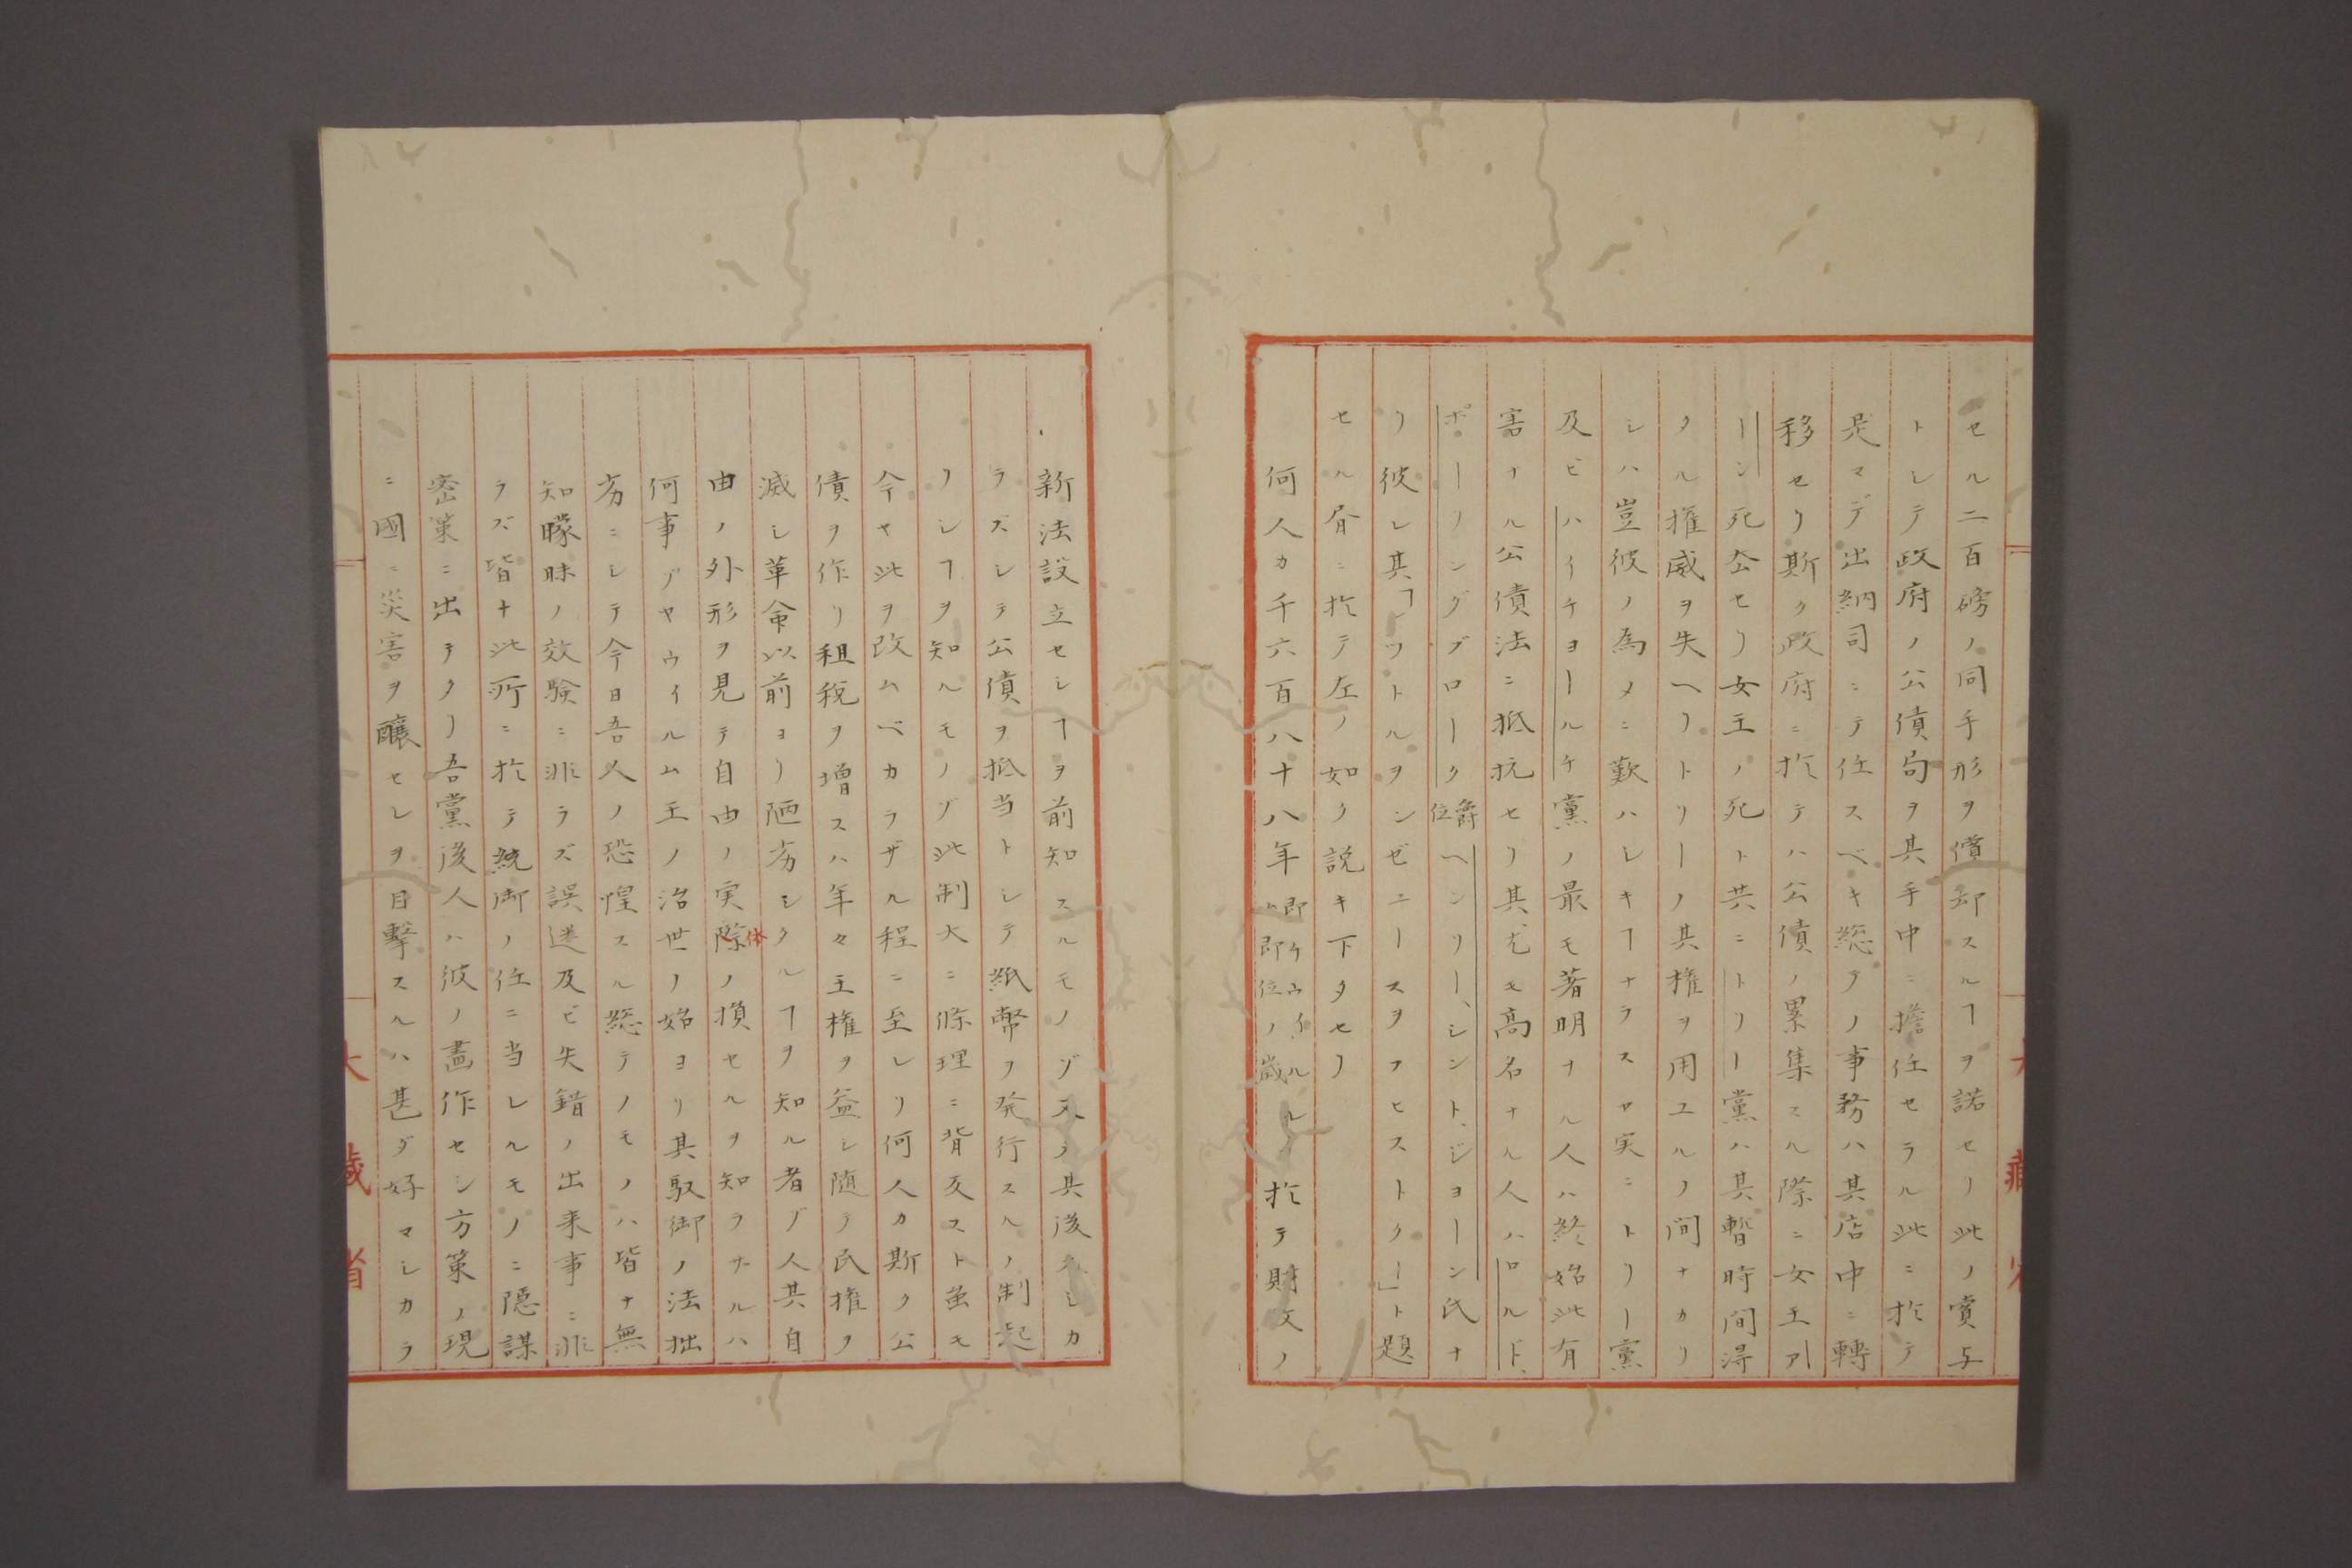 セル二百磅ノ同手形ヲ償却スルヿヲ諾セリ此ノ賞与
トシテ政府ノ公債局ヲ其手中ニ擔任セラル此ニ於テ
是マデ出納司ニテ任スベキ総テノ事務ハ其店中ニ轉
移セリ斯ク政府ニ於テハ公債ノ累集スル際ニ女王アン
ーン死去セリ女王ノ死ト共ニトリー黨ハ其暫時間淂
タル権威ヲ失ヘリトリーノ其権ヲ用ユルノ間ナカリ
シハ豈彼ノ為メニ歎ハシキヿナラスヤ実ニトリー黨
及ビハイチョールチ黨ノ最モ著明ナル人ハ終始此有
害ナル公債法ニ抵抗セリ其尤モ高名ナル人ハロルド、
ポーリングブローク爵位ヘンリー、シント、ジョーン氏ナ
リ彼レ其「レットルヲンゼユースヲフヒストクー」ト題
セル書ニ於テ左ノ如ク説キ下タセリ
何人カ千六百八十八年即ケウイルルム即位ノ歳ニ於テ財文ノ
新法設立セシヿヲ前知スルモノゾ又タ其後タシカ
ラズシテ公債ヲ抵当トシテ紙幣ヲ発行スルノ制起
リシヿヲ知ルモノゾ此制大ニ條理ニ背反スト虽モ
今ヤ此ヲ改ムベカラザル程ニ至レリ何人カ斯ク公
債ヲ作リ租税ヲ増スハ年々王権ヲ益シ随テ民権ヲ
減シ革命以前ヨリ陋劣シタルヿヲ知ル者ゾ人其自
由ノ外形ヲ見テ自由ノ実際体ノ損セルヲ知ラナルハ
何事ゾヤウイルム王ノ治世ノ始ヨリ其馭御ノ法拙
劣ニシテ今日吾人ノ恐惶スル総テノモノハ皆ナ無
知矇昧ノ效験ニ非ラズ誤迷及ビ失錯ノ出来事ニ非
ラズ皆ナ此所ニ於テ統御ノ任ニ当レルモノニ隠謀
密策ニ出テタリ吾黨後人ハ彼ノ畫作セシ方策ノ現
ニ國ニ災害ヲ釀セシヲ目撃スルハ甚ダ好マシカラ
大藏省